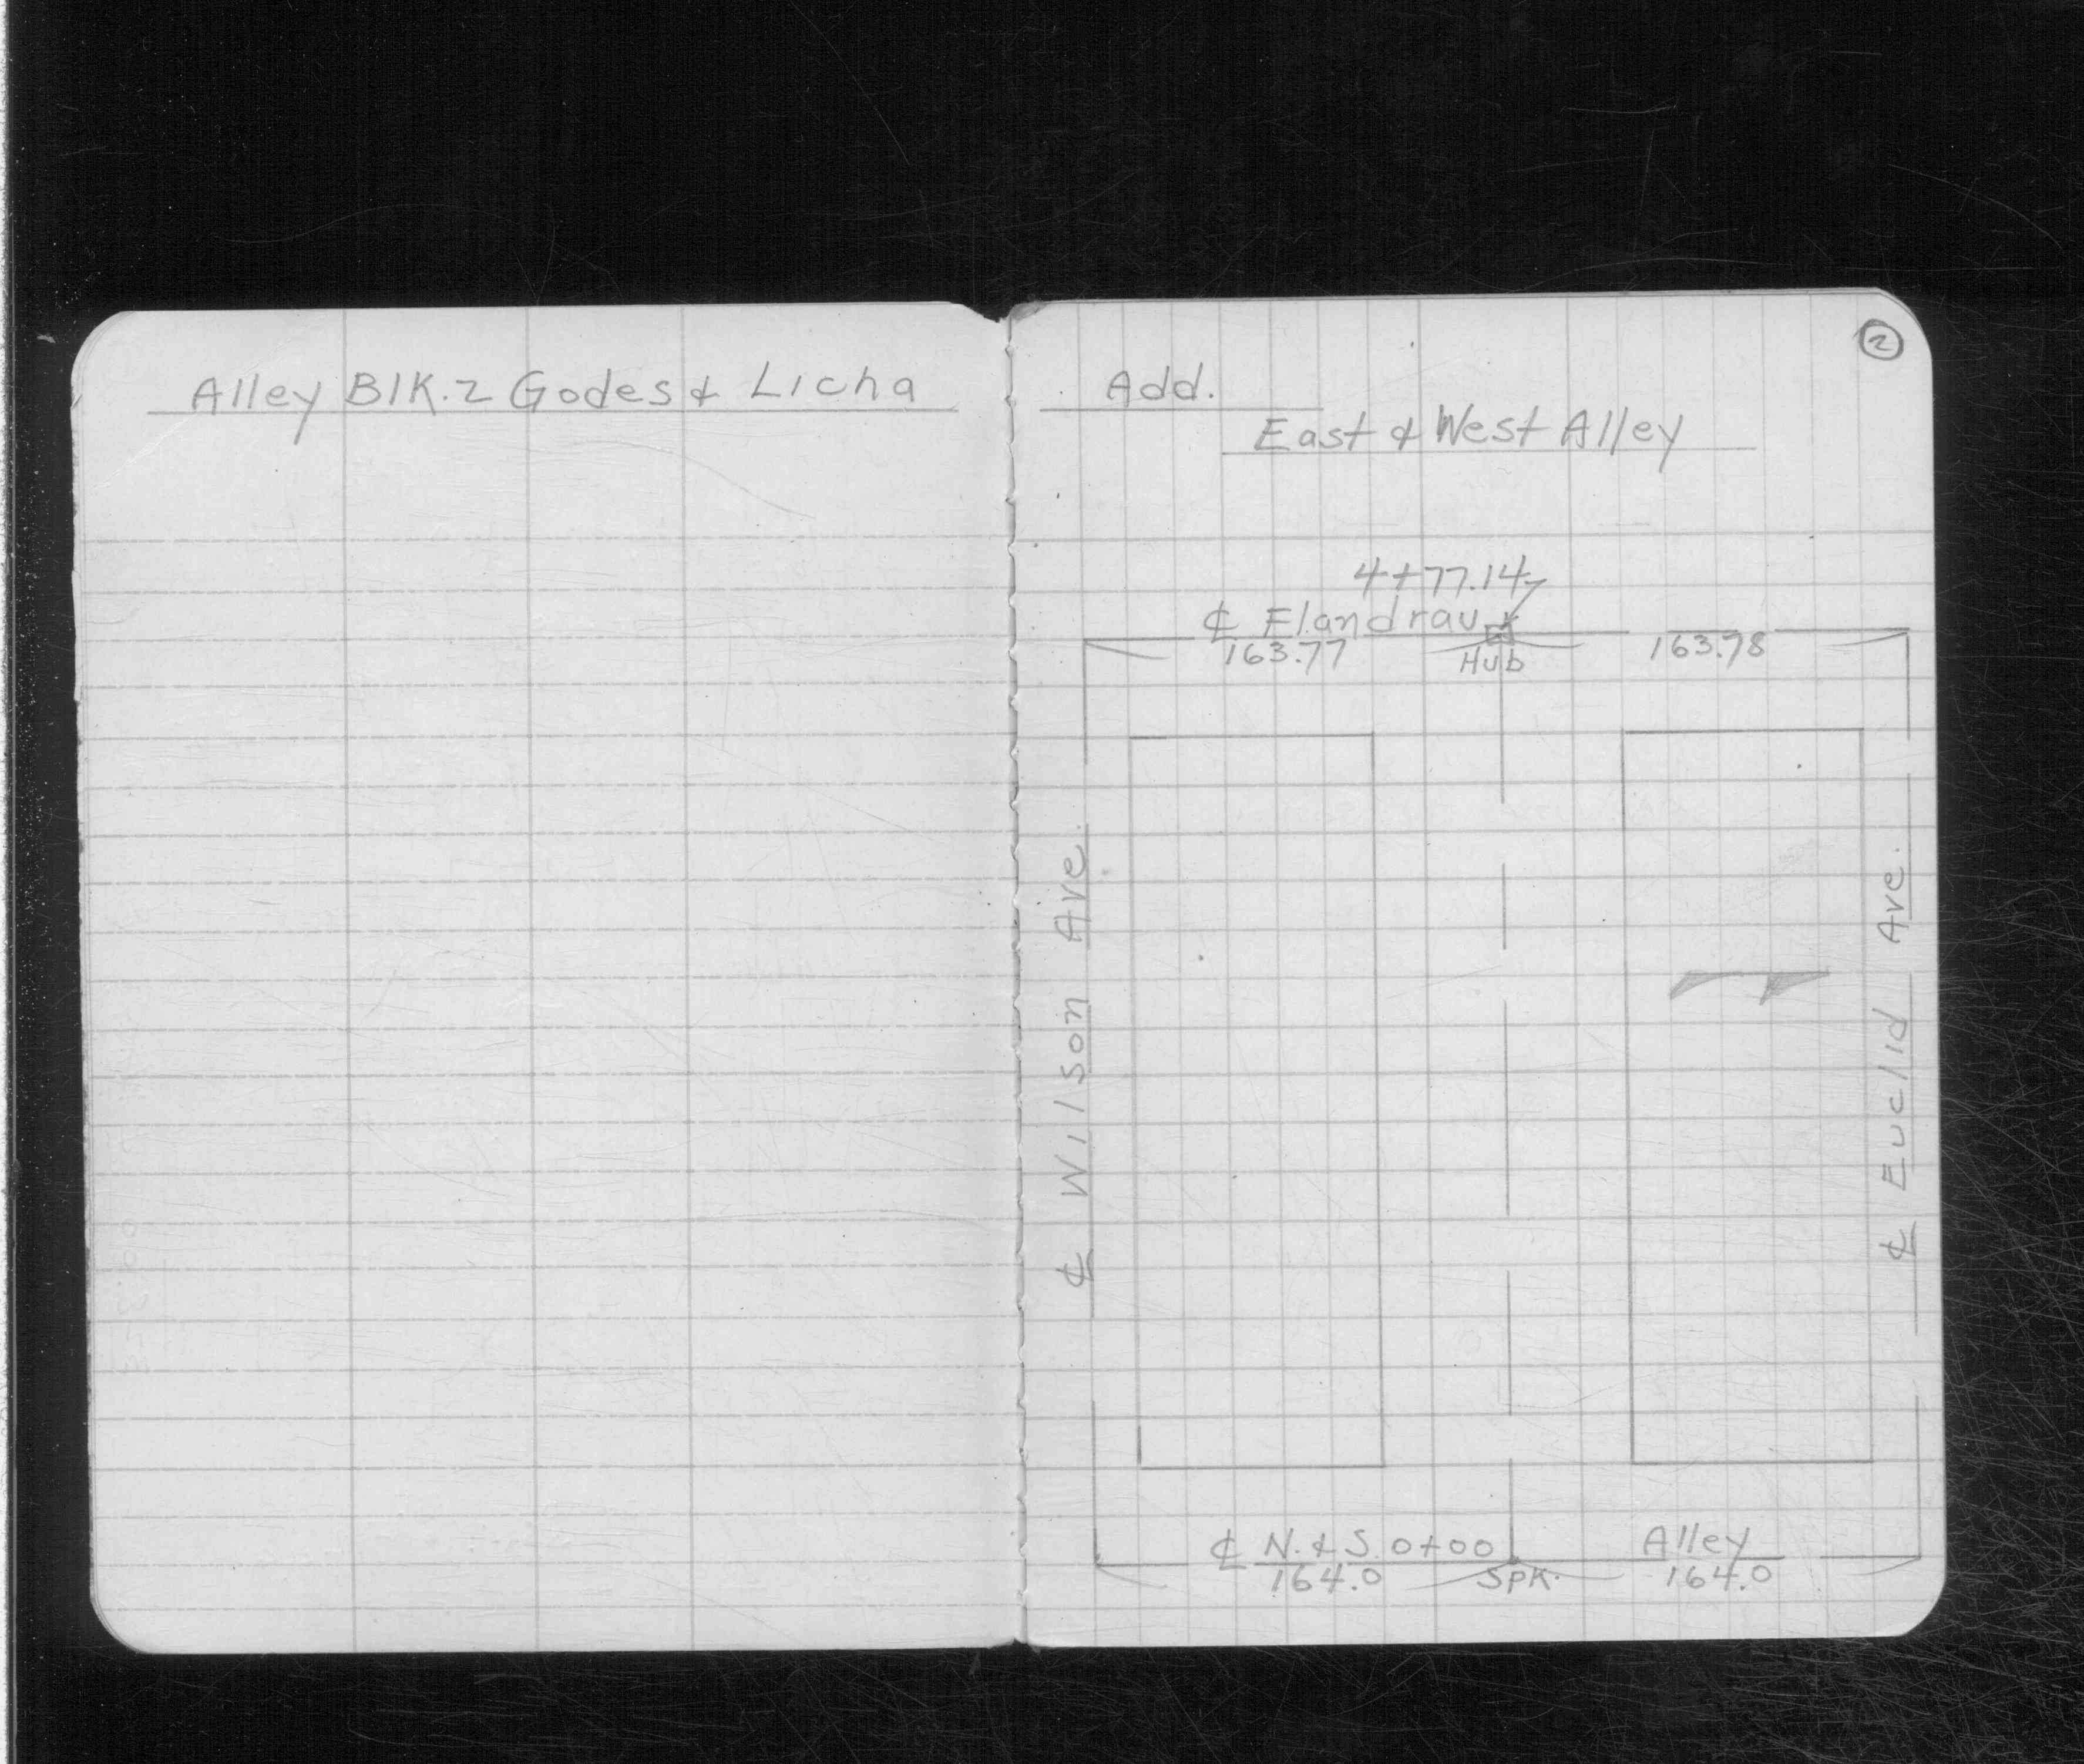 Alley Blk. 2 Godes & Licha Add.
2
East & West Alley
4+77.14
℄ Elandrau
163.77 Hub 163.78
℄ Wilson Ave.
℄ Euclid Ave.
℄ N. & S. 0+00 Alley
164.0 Spk. 164.0